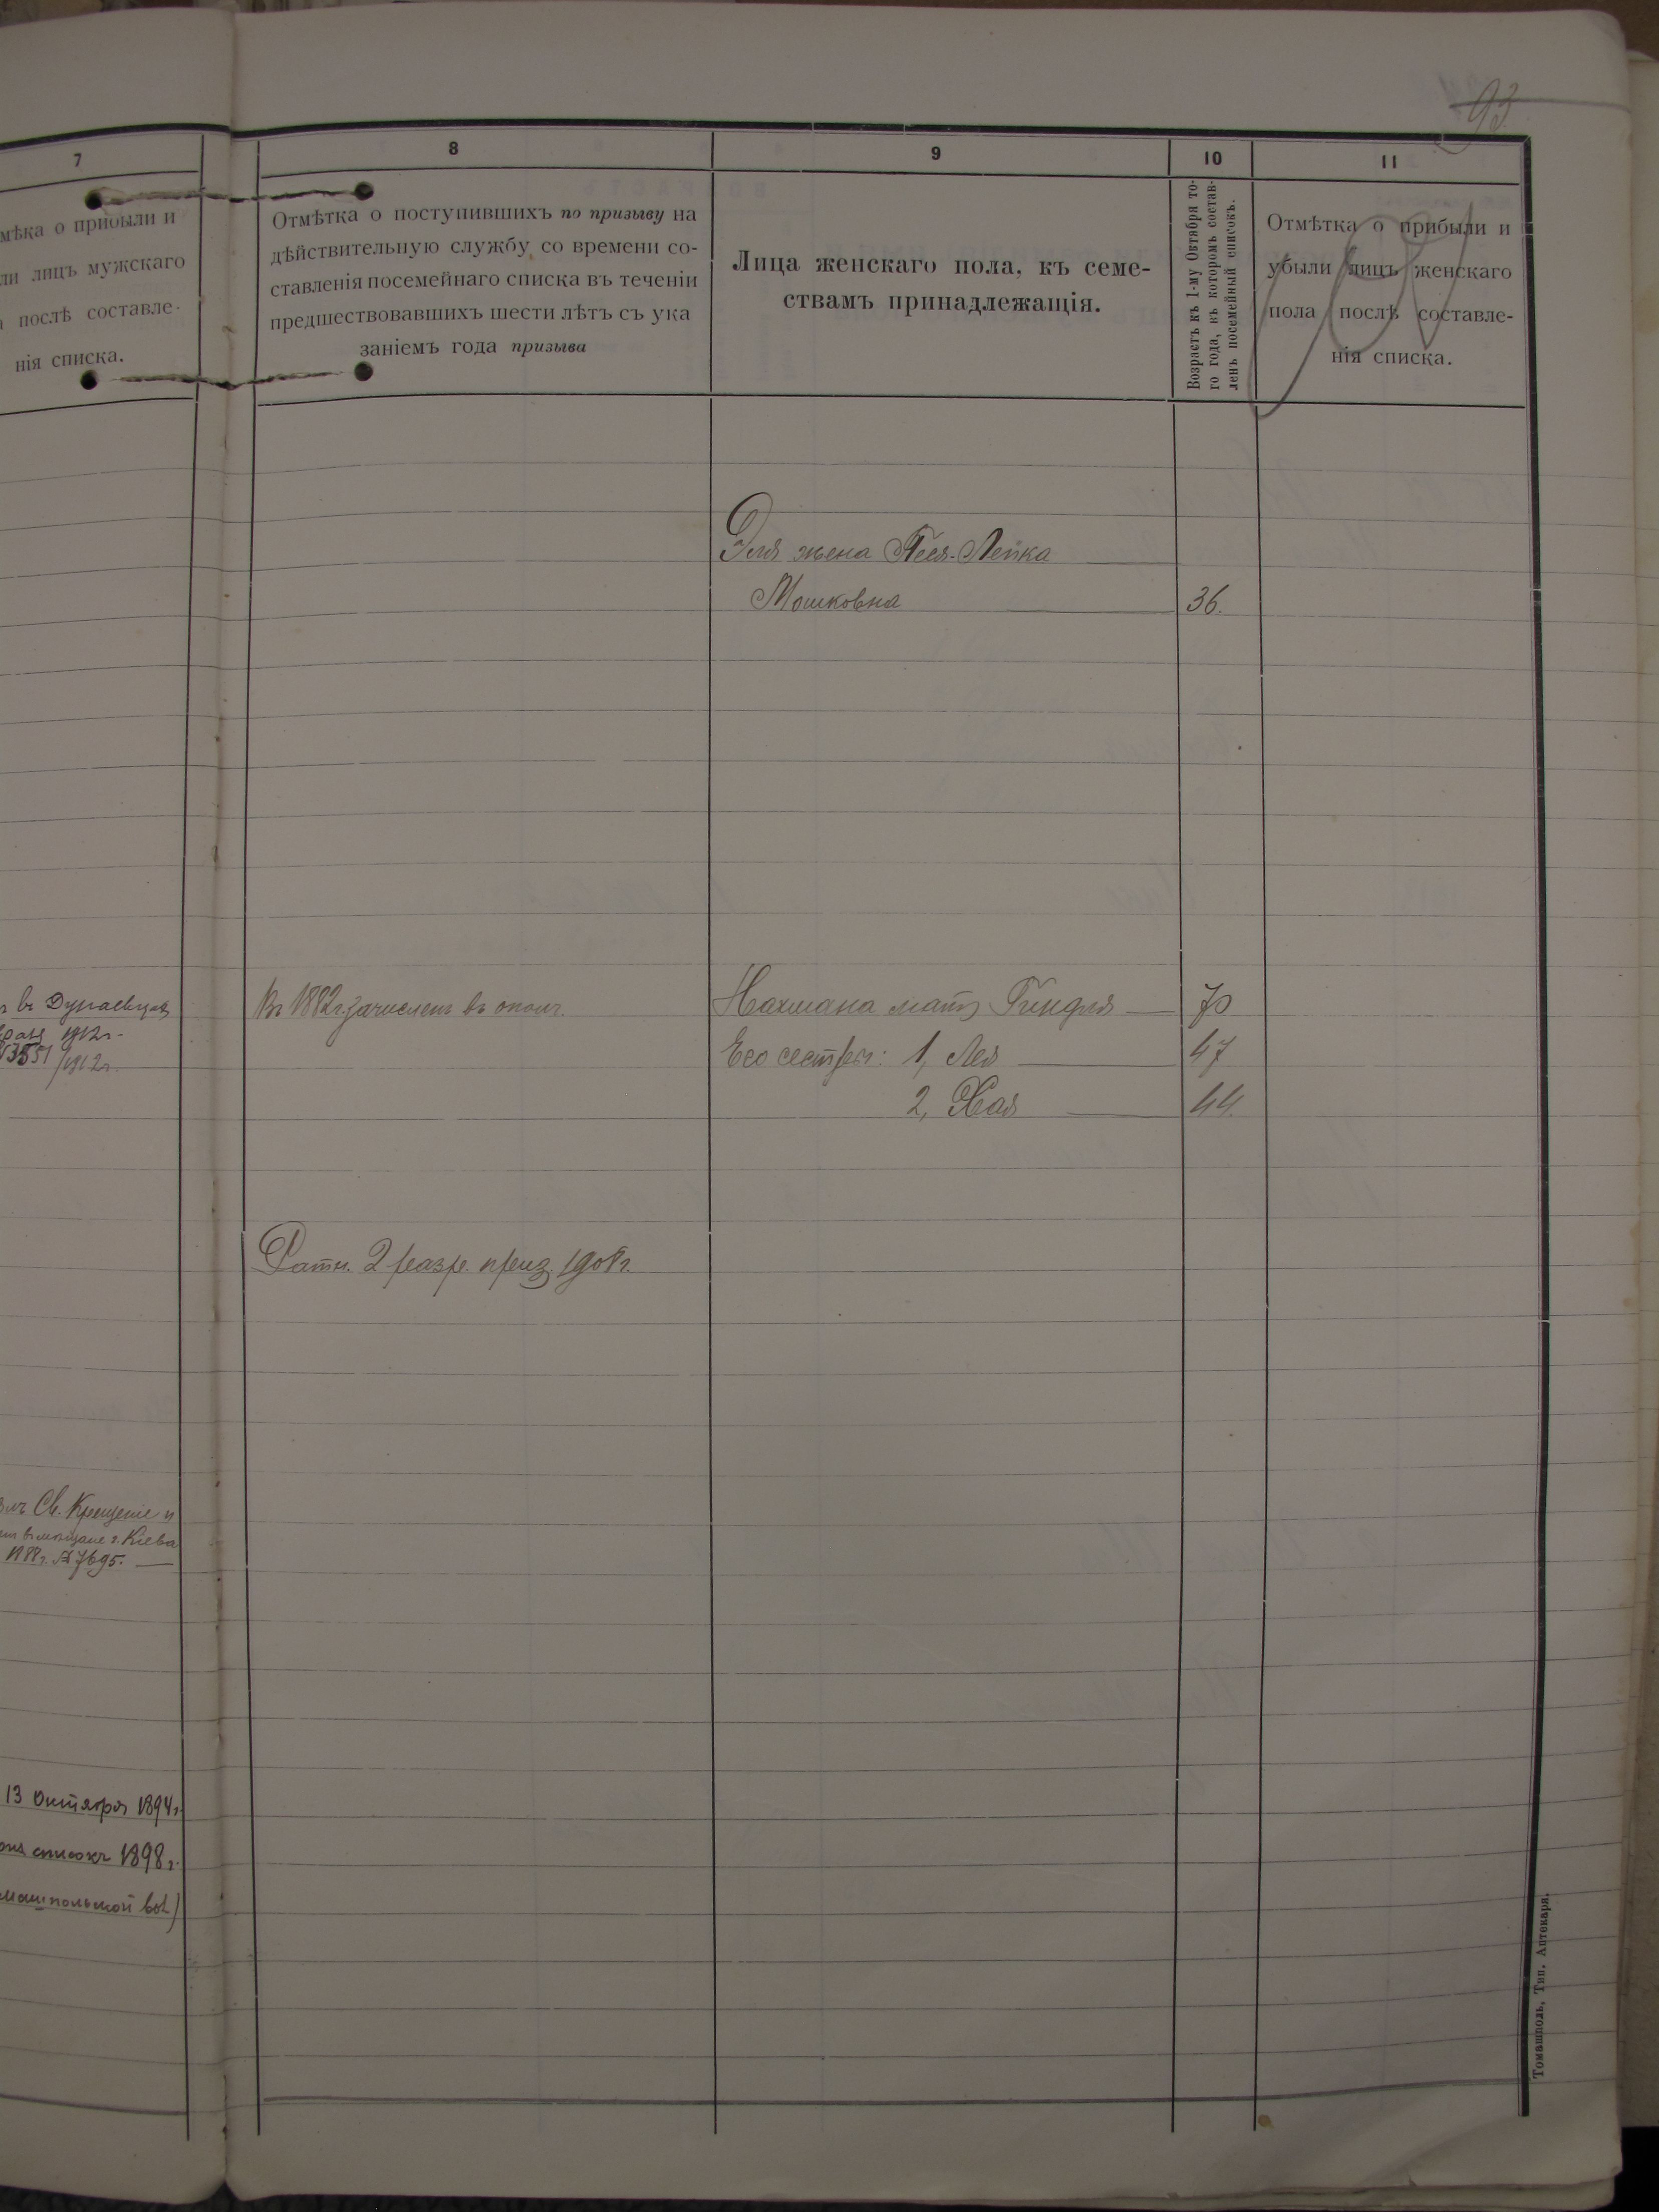 93
7
мѣка о прибыли и
ли лицъ мужскаго
послѣ составле-
нія списка.
8
Отмѣтка о поступившихъ по призыву на
дѣйствительную службу со времени со-
ставленія посемейнаго списка въ теченіи
предшествовавшихъ шести лѣтъ съ ука
заніемъ года призыва
9
Лица женскаго пола, къ семе-
ствамъ принадлежащія.
10
Возрастъ къ 1-му Октября то-
го года, въ которомъ состав-
ленъ посемейный списокъ.
11
Отмѣтка о прибыли и
убыли лицъ женскаго
пола послѣ составле-
нія списка.
Эля жена Песя-Лейка
Мошковна 36.
въ Дунаевцах
1912г.
/1912г.
Въ 1882г. зачисленъ въ ополч.
Нахмана мать Гиндля 70
Его сестры: 1, Лея 47
2, Хая 44.
Ратн. 2 разр. приз. 1908г.
Св. Крещеніе и
г. Кіева
№ 7695.
13 Октября 1894г.
списокъ 1898г.
машпольской вол)
Томашполь, Тип. Аптекаря.